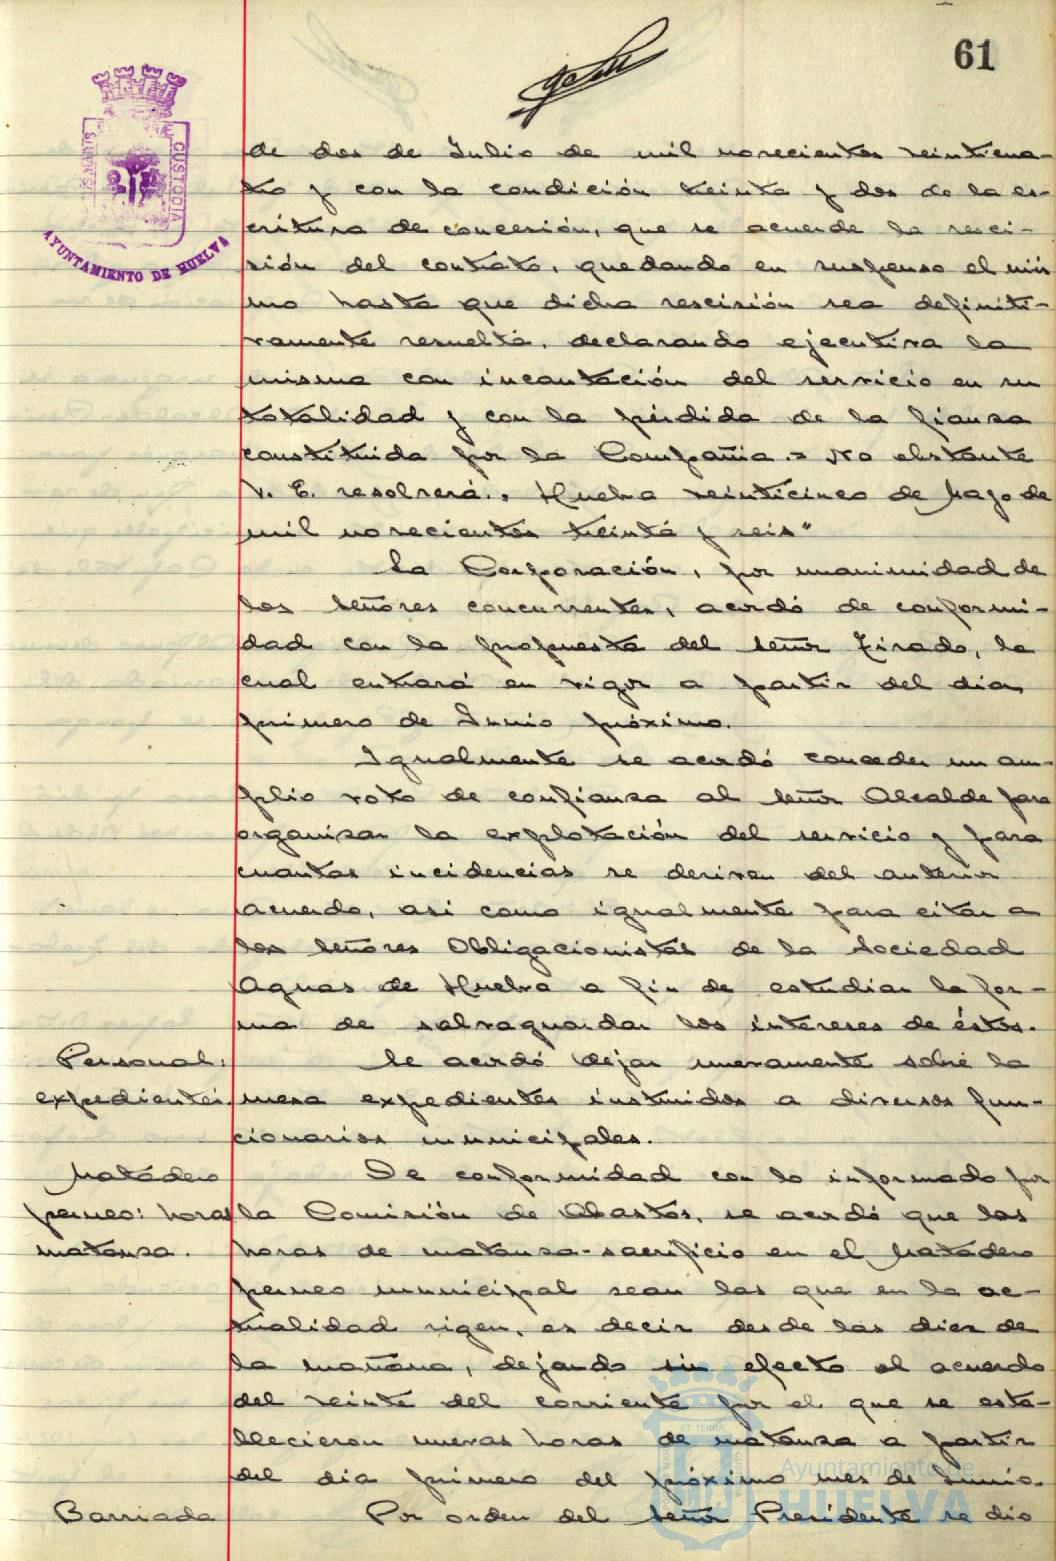 61
PORTUS MARIS
CUSTODIA
AYUNTAMIENTO DE HUELVA
de dos de Julio de mil novecientos veinticua-
tro y con la condición treinta y dos de la es-
critura de concesión, que se acuerde la resci-
sión del contrato, quedando en suspenso el mis
mo hasta que dicha rescisión sea definiti-
vamente resuelta, declarando ejecutiva la
misma con incautación del servicio en su
totalidad y con la pérdida de la fianza
constituida por la Compañia.= No obstante
V. E. resolverá.. Huelva veinticinco de Mayo de
mil novecientos treinta y seis"
La Corporación, por unanimidad de
los señores concurrentes, acordó de conformi-
dad con la propuesta del señor Tirado, la
cual entrará en vigor a partir del dia
primero de Junio próximo.
Igualmente se acordó conceder un am-
plio voto de confianza al señor Alcalde para
organizar la explotación del servicio y para
cuantas incidencias se deriven del anterior
acuerdo, asi como igualmente para citar a
los señores Obligacionistas de la Sociedad
Aguas de Huelva a fin de estudiar la for-
ma de salvaguardar los intereses de éstos.
Personal: Se acordó dejar nuevamente sobre la
expedientes. mesa expedientes instruidos a diversos fun-
cionarios municipales.
Matadero De conformidad con lo informado por
porcuno: horas la Comisión de Abastos, se acordó que las
matanza. horas de matanza-sacrificio en el Matadero
porcuno municipal sean las que en la ac-
tualidad rigen, es decir desde las diez de
la mañana, dejando sin efecto el acuerdo
del veinte del corriente por el que se esta-
blecieron nuevas horas de matanza a partir
del dia primero del próximo mes de Junio.
Barriada Por orden del señor Presidente se dio
Ayuntamiento de
HUELVA